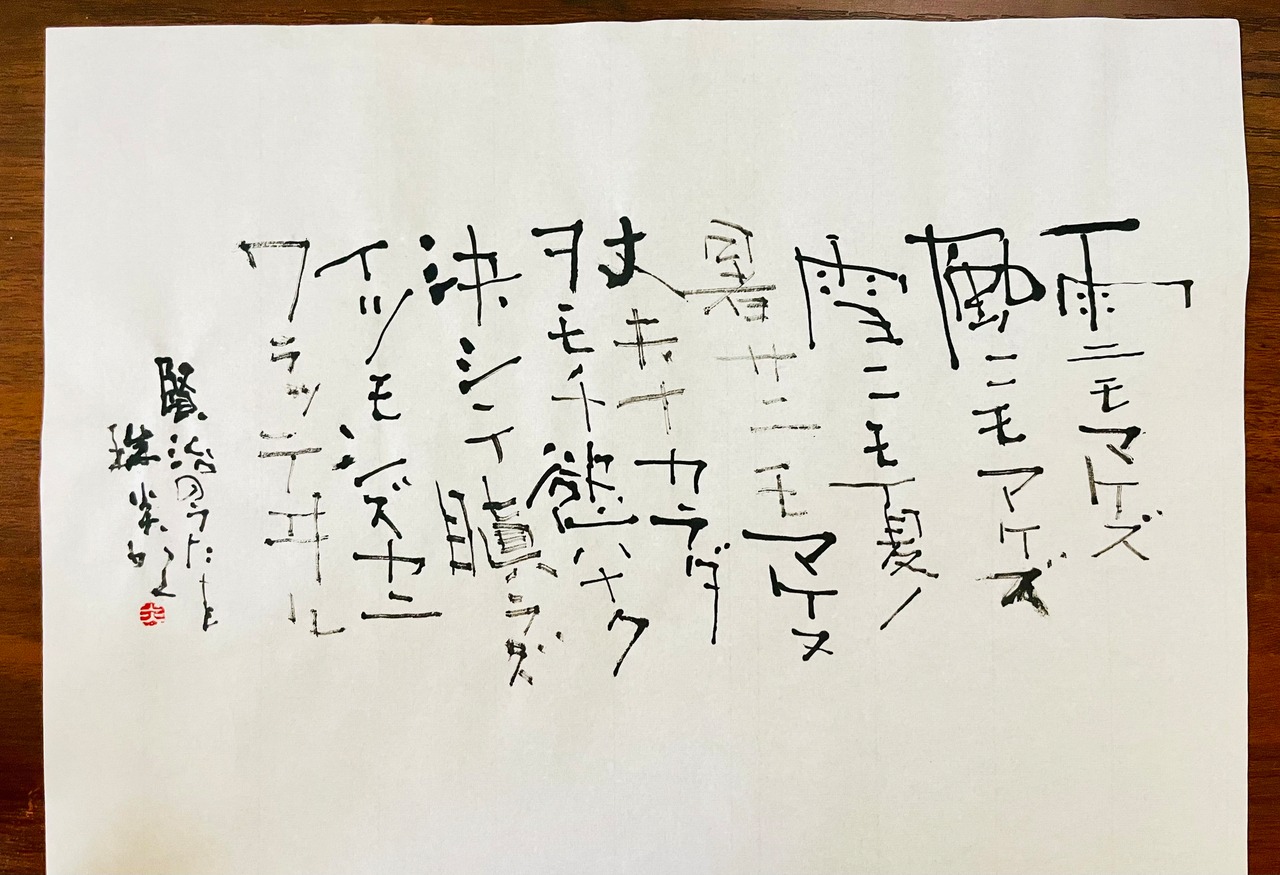 雨ニモマケズ
風ニモマケズ
雪ニモ夏ノ
暑サニモマケヌ
丈夫ナカラダ
ヲモチ慾ハナク
決シテ瞋ラズ
イツモシズカニ
ワラッテヰル
賢治のうた